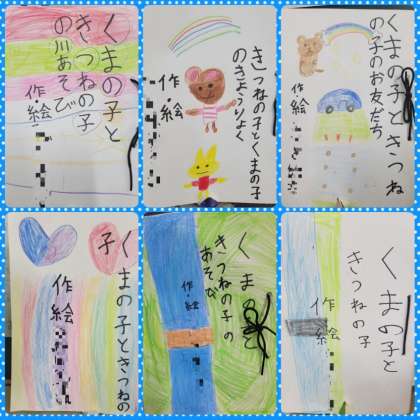 くまの子と
きつねの子
の川あそび
作・絵
きつねの子とくまの子
のきょうりょく
作・絵
くまの子ときつね
の子のお友だち
作・絵
くまの子ときつねの
子
作・絵
くまの
きつねの子の
あそび
作・絵
くまの子と
きつねの子
作・絵